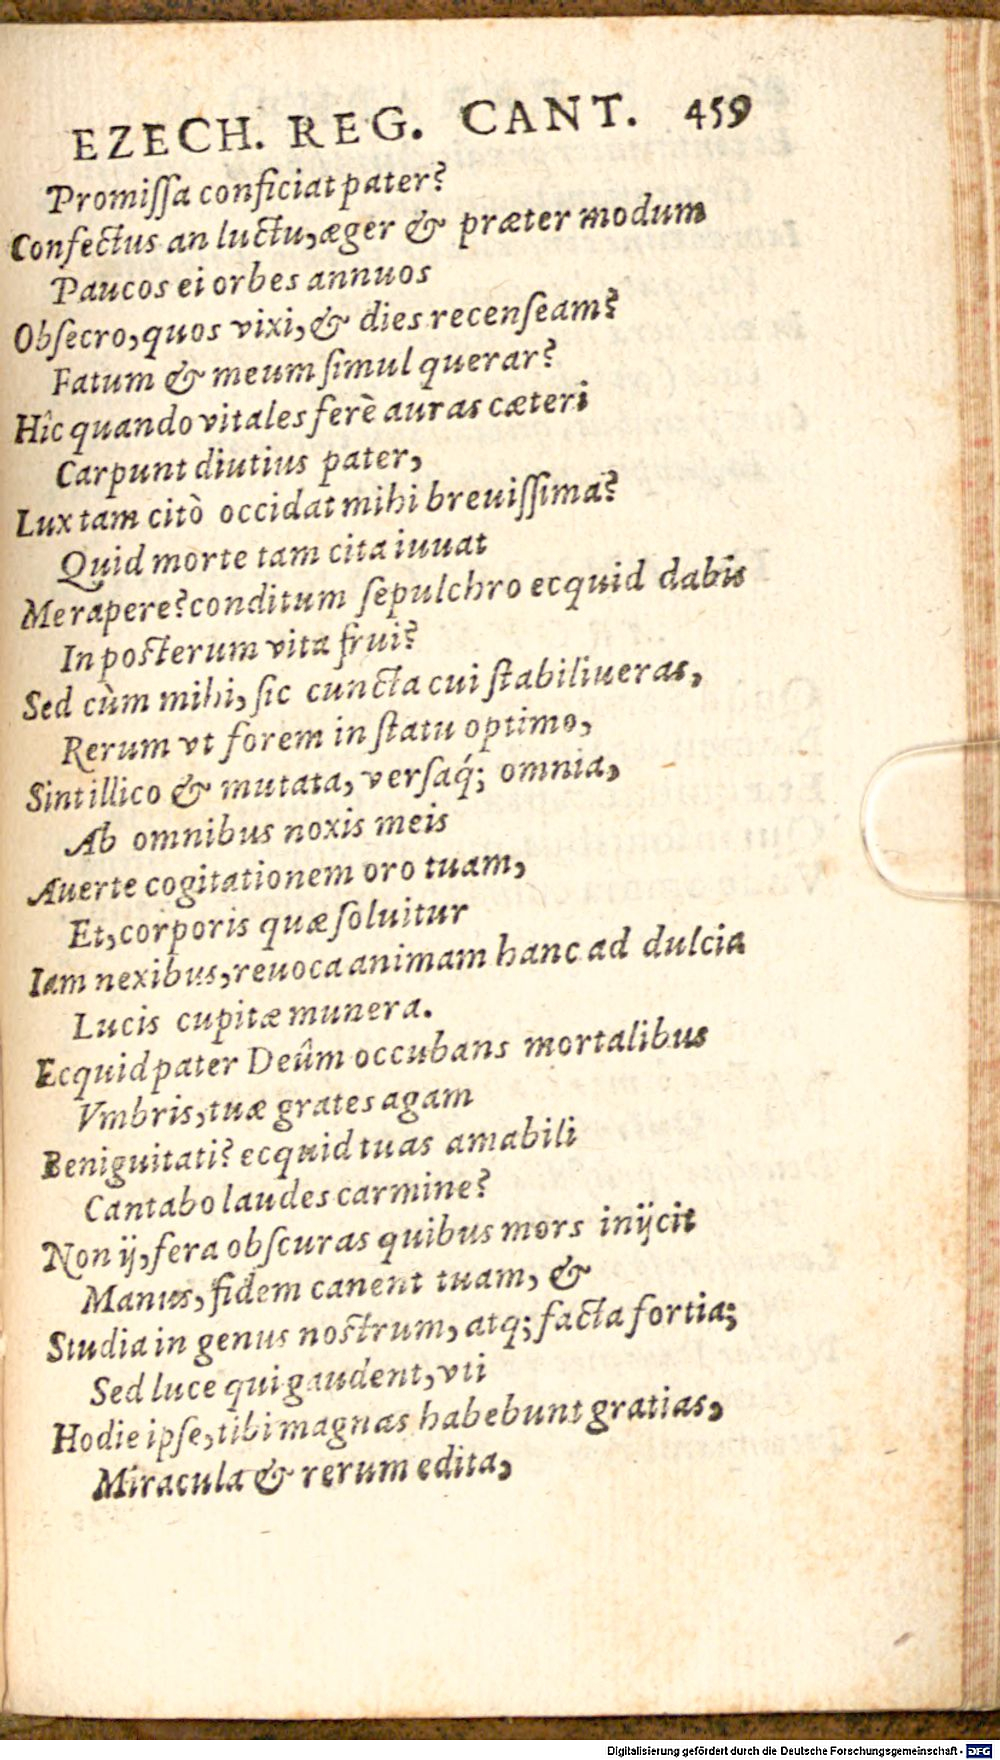 EZECH. REG. CANT. 459
Promissa conficiat pater?
Confectus an luctu, æger & præter modum
Paucos ei orbes annuos
Obsecro, quos vixi, & dies recenseam?
Fatum & meum simul querar?
Hîc quando vitales ferè auras cæteri
Carpunt diutius pater,
Lux tam citò occidat mihi breuissima?
Quid morte tam cita iuuat
Me rapere? conditum sepulchro ecquid dabis
In posterum vita frui?
Sed cùm mihi, sic cuncta cui stabiliueras,
Rerum vt forem in statu optimo,
Sint illico & mutata, versaq́; omnia,
Ab omnibus noxis meis
Auerte cogitationem oro tuam,
Et, corporis quæ soluitur
Iam nexibus, reuoca animam hanc ad dulcia
Lucis cupitæ munera.
Ecquid pater Deûm occubans mortalibus
Vmbris, tuæ grates agam
Beniguitati? ecquid tuas amabili
Cantabo laudes carmine?
Non ij, fera obscuras quibus mors inijcit
Manus, fidem canent tuam, &
Studia in genus nostrum, atq; facta fortia;
Sed luce qui gaudent, vti
Hodie ipse, tibi magnas habebunt gratias,
Miracula & rerum edita,
Digitalisierung gefördert durch die Deutsche Forschungsgemeinschaft - DFG